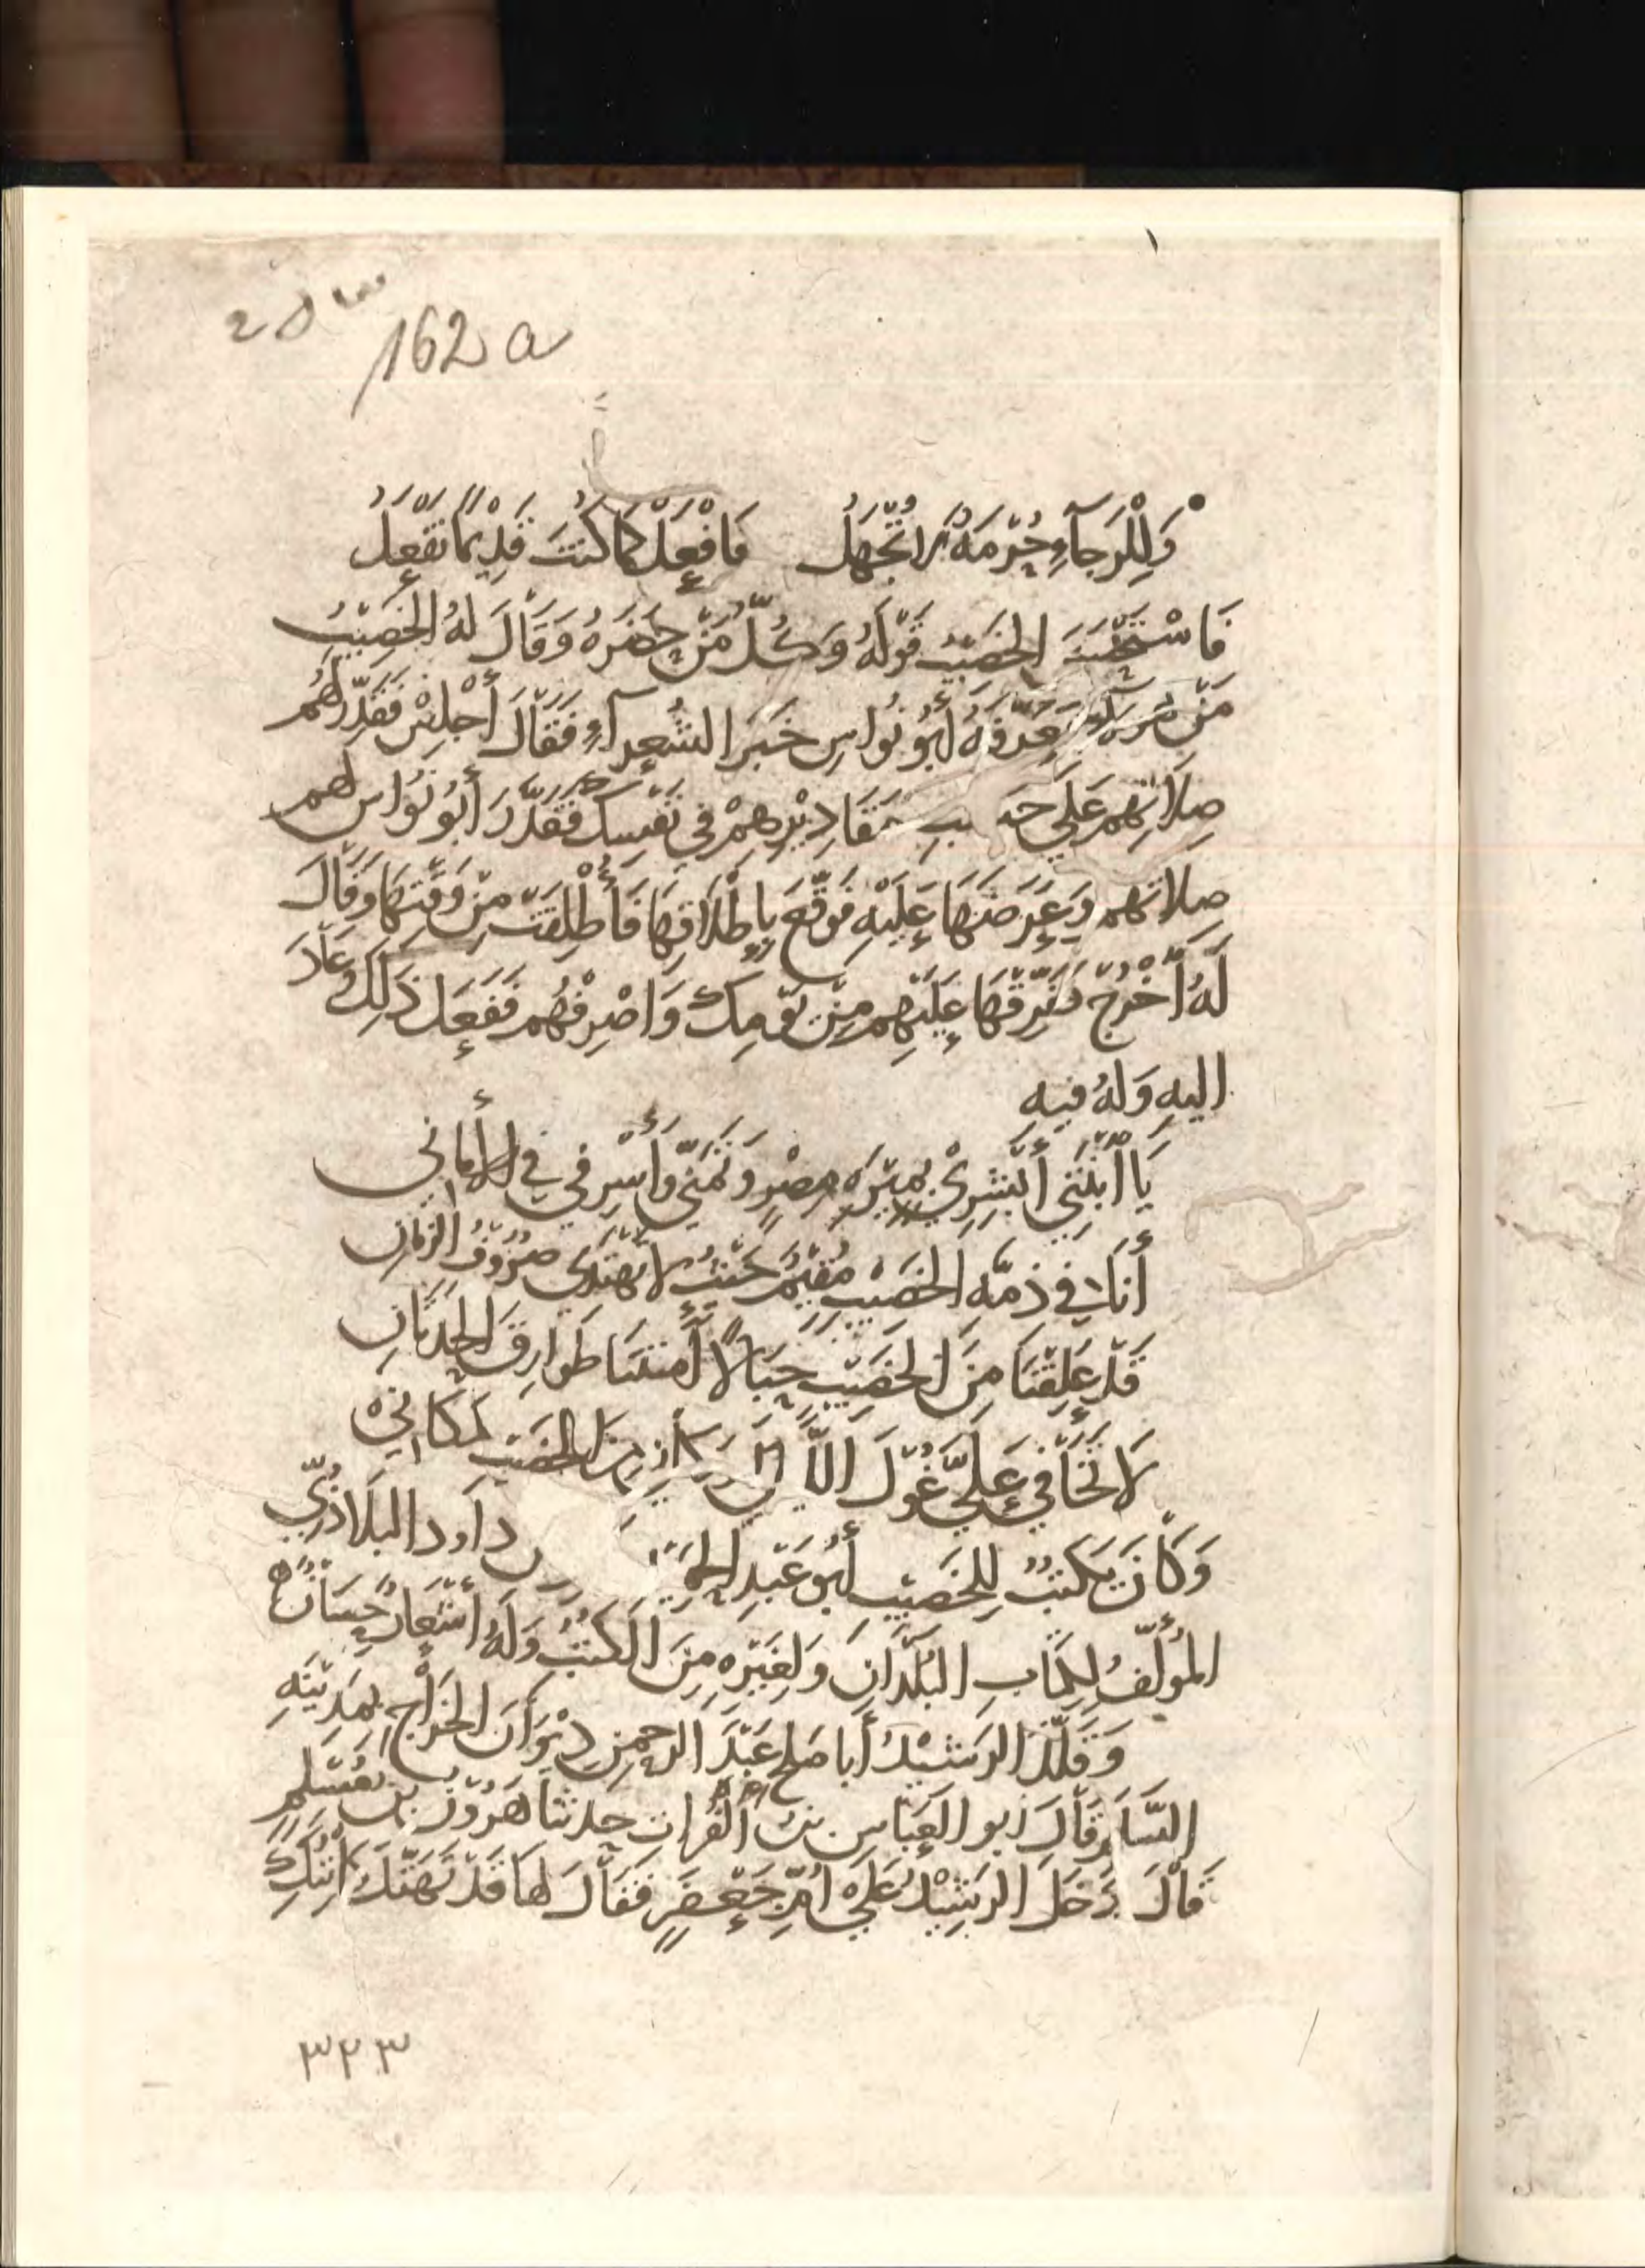 162 a
وَلِلرَجَآءِ حُرْمَةٌ لَا تُجْهَلُ فَافْعَلْ كَمَا كُنْتَ قَدِيْمًا تَفْعَلُ
فَاسْتَحْسَنَ الخَصِيْبُ قَوْلَهُ وَكُلُّ مَنْ حَضَرَهُ وَقَالَ لَهُ الخَصِيْبُ
مَنْ فَعَرَّفَهُ أَبُو نُواسٍ خَبَرَ الشُعَرآءِ فَقَالَ أَجْلِسْ فَقَدِّرْ لَهُمْ
صِلَاتِهِم عَلَى حَسبِ مَقَادِيْرِهِمْ فِي نَفْسِكَ فَقَدَّرَ أَبُو نُوَاسٍ لهم
صِلاتهم وَعَرَضَهَا عَلَيْهِ فَوَقَّعَ بِإِطْلَاقِهَا فَأُطْلِقَتْ مِنْ وَقْتِهَا وَقَالَ
لَهُ أُخْرُجْ فَفَرِّقْهَا عَلَيْهِم مِنْ يَوْمِكَ وَاصْرِفْهُم فَفَعَلَ ذَلِكَ وَعَادَ
اليهِ وَلهُ فيهِ
يَا ابْنَتِي أَبْشِرِيْ بِمِيْرَةِ مِصْرٍ وَتَمَنَّيْ وَأَسْرِفي فِي الأَمَانِي
أَنَا فِي ذِمَّةِ الخَصِيْبِ مُقِيْمٌ حَيْثُ لَا تَهْتَدِي صُرُوْفُ الزَمَانِ
قَدْ عَلِقْنَا مِنَ الخَصِيْبِ حِبَالًا أَمنَتْنَا طَوَارِقَ الحَدَثَانِ
لَا تَخَافِي عَلَيَّ غُوْلَ اللَّيَالِي مِنَ الخَصِيْبِ مَكَانِي
وَكَانَ يَكْتُبُ لِلخَصِيْبِ أَبُو عَبْدِ الحَمِيْدِ داود البَلَاذُرِيّ
المُؤَلِّفُ لِكِتَابِ البُلْدَانِ وَلِغَيْرِهِ مِنَ الكُتُبِ وَلَهُ أَشْعَارٌ حِسَانٌ
وَقَلَّدَ الرَشِيْدُ أَبا صَالح عَبْدَ الرحمنِ دِيْوَانَ الخَرَاجِ بِمَدِيْنَةِ
السَّلَام قَالَ ابو العَبَّاسِ بنُ الفُرَاتِ حدثنا هَرُوْنُ بن مُسْلِمٍ
قَالَ دَخَلَ الرَشِيْدُ عَلَى أُمِّ جَعْفَرٍ فَقَالَ لَهَا قَدْ تَهَتَّكَ
٣٢٣